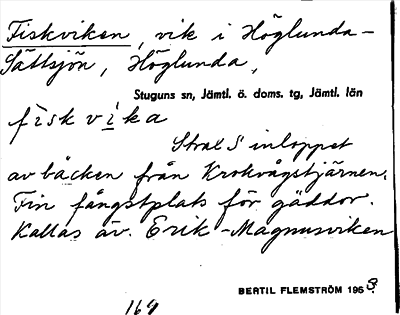 Fiskviken, vik i Höglunda-
Sättsjön, Höglunda,
Stuguns sn, Jämtl. ö. doms. tg, Jämtl. län
fìskvi̲ka
Strax S inloppet
av bäcken från Krokvågstjärnen.
Fin fångstplats för gäddor.
Kallas äv. Erik-Magnusviken
BERTIL FLEMSTRÖM 1963.
169